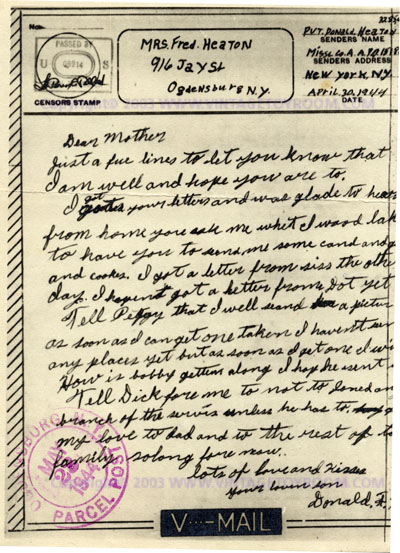 No.
PASSED BY
U S
CENSORS STAMP
MRS. Fred. HEATON
916 JAY St
Ogdensburg N.Y.
PVT. Donald Heaton
SENDERS NAME
SENDERS ADDRESS
NEW YORK, N.Y.
APRIL 30, 1944
DATE
Dear Mother
Just a few lines to let you know that
I am well and hope you are to,
I got your letters and was glade to hear
from home you ask me whet I wood lak
to have you to send me some cand and g
and cookes. I got a letter from siss the othe
day. I havent got a letter from Dot yet
Tell Peggy that I well send a pictur
as soon as I can get one taken I havent
any places yet but as soon as I get one I w
How is bobby getten along I hop he isent
Tell Dick fore me to not to
branch of the servis unless he has to,
my love to Dad and to the rest of t
family, solong fore now.
Lots of love and Kisses
your loven son
Donald. H.
OGDENSBURG, N.Y.
MAY
1944
PARCEL POST
2003 WWW.VINTAGETOYROOM.COM
V···—MAIL